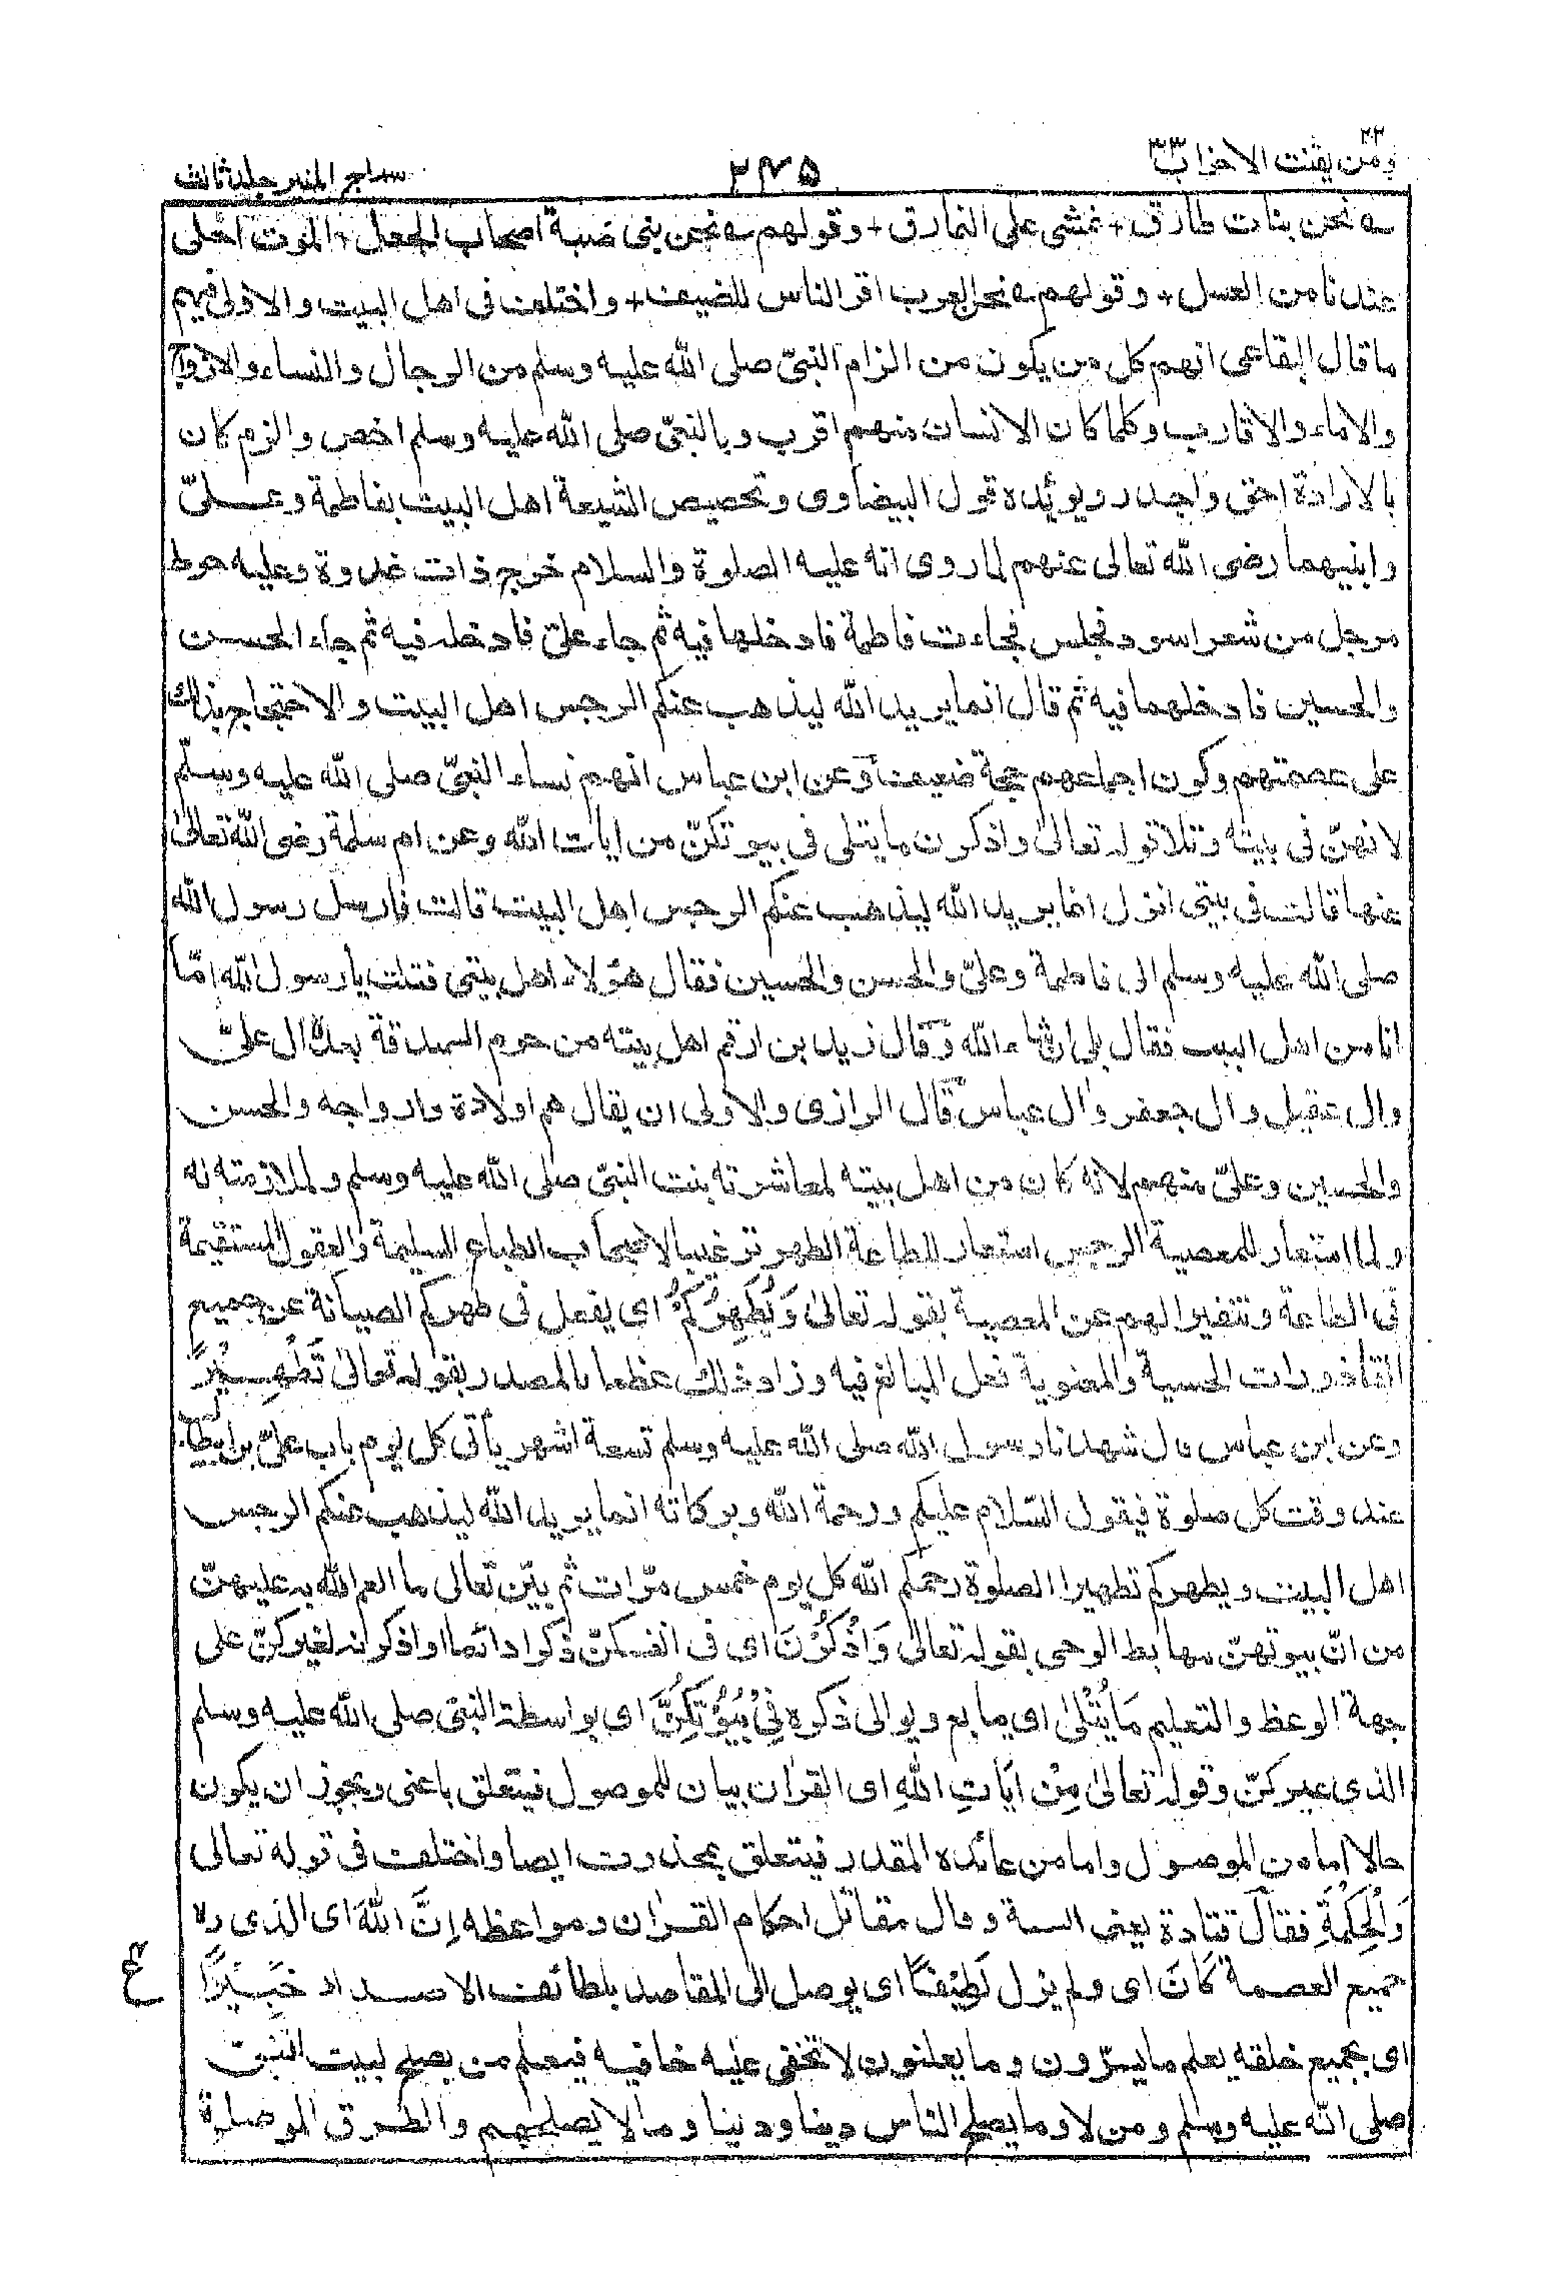 ومن يقنت الاحزاب ٣٣
٢٢
٢٤٥
سراج المنير جلد ثالث
نحن بنات طارق + نمشى على النمارق + وقولهم نحن بنى ضبة اصحاب الجمل + الموت احلى
عندنا من العسل + وقولهم نحن العرب اقر الناس للضيف + واختلف فى اهل البيت والاولى فيهم
ما قال البقاعى انهم كل من يكون من الزام النبىّ صلى الله عليه وسلم من الرجال والنساء والازواج
والاماء والاقارب وكلما كان الانسان منهم اقرب وبالنبىّ صلى الله عليه وسلم اخص والزم كان
بالارادة احق واجدر ويؤيده قول البيضاوى وتخصيص الشيعة اهل البيت بفاطمة وعلىّ
وابنيهما رضى الله تعالى عنهم لما روى انه عليه الصلوة والسلام خرج ذات غدوة وعليه مرط
مرجل من شعر اسود فجلس فجاءت فاطمة فادخلها فيه ثم جاء علىّ فادخله فيه ثم جاء الحسن
والحسين فادخلهما فيه ثم قال انما يريد الله ليذهب عنكم الرجس اهل البيت والاحتجاج بذلك
على عصمتهم وكون اجماعهم حجة ضعيف وعن ابن عباس انهم نساء النبىّ صلى الله عليه وسلّم
لانهنّ فى بيته وتلا قوله تعالىٰ واذكرن ما يتلى فى بيوتكنّ من ايات الله وعن ام سلمة رضى الله تعالىٰ
عنها قالت فى بيتى انزل انما يريد الله ليذهب عنكم الرجس اهل البيت قالت فارسل رسول الله
صلى الله عليه وسلم الى فاطمة وعلىّ والحسن والحسين فقال هؤلاء اهل بيتى فقلت يا رسول الله امّا
انا من اهل البيت فقال بلى ان شاء الله وقال زيد بن ارقم اهل بيته من حرم الصدقة بعده ال علىّ
وال عقيل وال جعفر وال عباس قال الرازى والاولى ان يقال هم اولاده وازواجه والحسن
والحسين وعلىّ منهم لانه كان من اهل بيته لمعاشرته بنت النبىّ صلى الله عليه وسلم ولملازمته له
ولما استعار للمعصية الرجس استعار للطاعة الطهر ترغيبا لاصحاب الطباع السليمة والعقول المستقيمة
فى الطاعة وتنفيرا لهم عن المعصية بقوله تعالىٰ وَيُطَهِّرَكُمْ اى يفعل فى طهركم الصيانة عن جميع
القاذورات الحسية والمعنوية فعل المبالغ فيه وزاد ذلك عظما بالمصدر بقوله تعالىٰ تَطْهِيْرًا
وعن ابن عباس قال شهدنا رسول الله صلى الله عليه وسلم تسعة اشهر يأتى كل يوم باب علىّ بن ابيطالب
عند وقت كل صلوة فيقول السّلام عليكم ورحمة الله وبركاته انما يريد الله ليذهب عنكم الرجس
اهل البيت ويطهركم تطهيرا الصلوة رحمكم الله كل يوم خمس مرّات ثم بيّن تعالى ما انعم الله به عليهنّ
من انّ بيوتهنّ مهابط الوحى بقوله تعالىٰ وَاذْكُرْنَ اى فى انفسكنّ ذكرا دائما او اذكرنه لغيركنّ على
جهة الوعظ والتعليم مَا يُتْلٰى اى يتابع ويوالى ذكره فِيْ بُيُوْتِكُنَّ اى بواسطة النبىّ صلى الله عليه وسلم
الذى خيركنّ وقوله تعالىٰ مِنْ اٰيَاتِ اللهِ اى القران بيان للموصول فيتعلق باعنى ويجوز ان يكون
حالا اما من الموصول واما من عائده المقدر فيتعلق بمحذوف ايضا واختلف فى قوله تعالى
وَالْحِكْمَةِ فقال قتادة يعنى السنة وقال مقاتل احكام القران ومواعظه اِنَّ اللهَ اى الذى له
جميع العصمة كَانَ اى ولم يزل لَطِيْفًا اى يوصل الى المقاصد بلطائف الاضداد خَبِيْرًا
ع
اى بجميع خلقه يعلم ما يسرّون وما يعلنون لا تخفى عليه خافية فيعلم من يصلح لبيت النبىّ
صلى الله عليه وسلم ومن لا وما يصلح الناس دينا ودنيا وما لا يصلحهم والطرق الموصلة